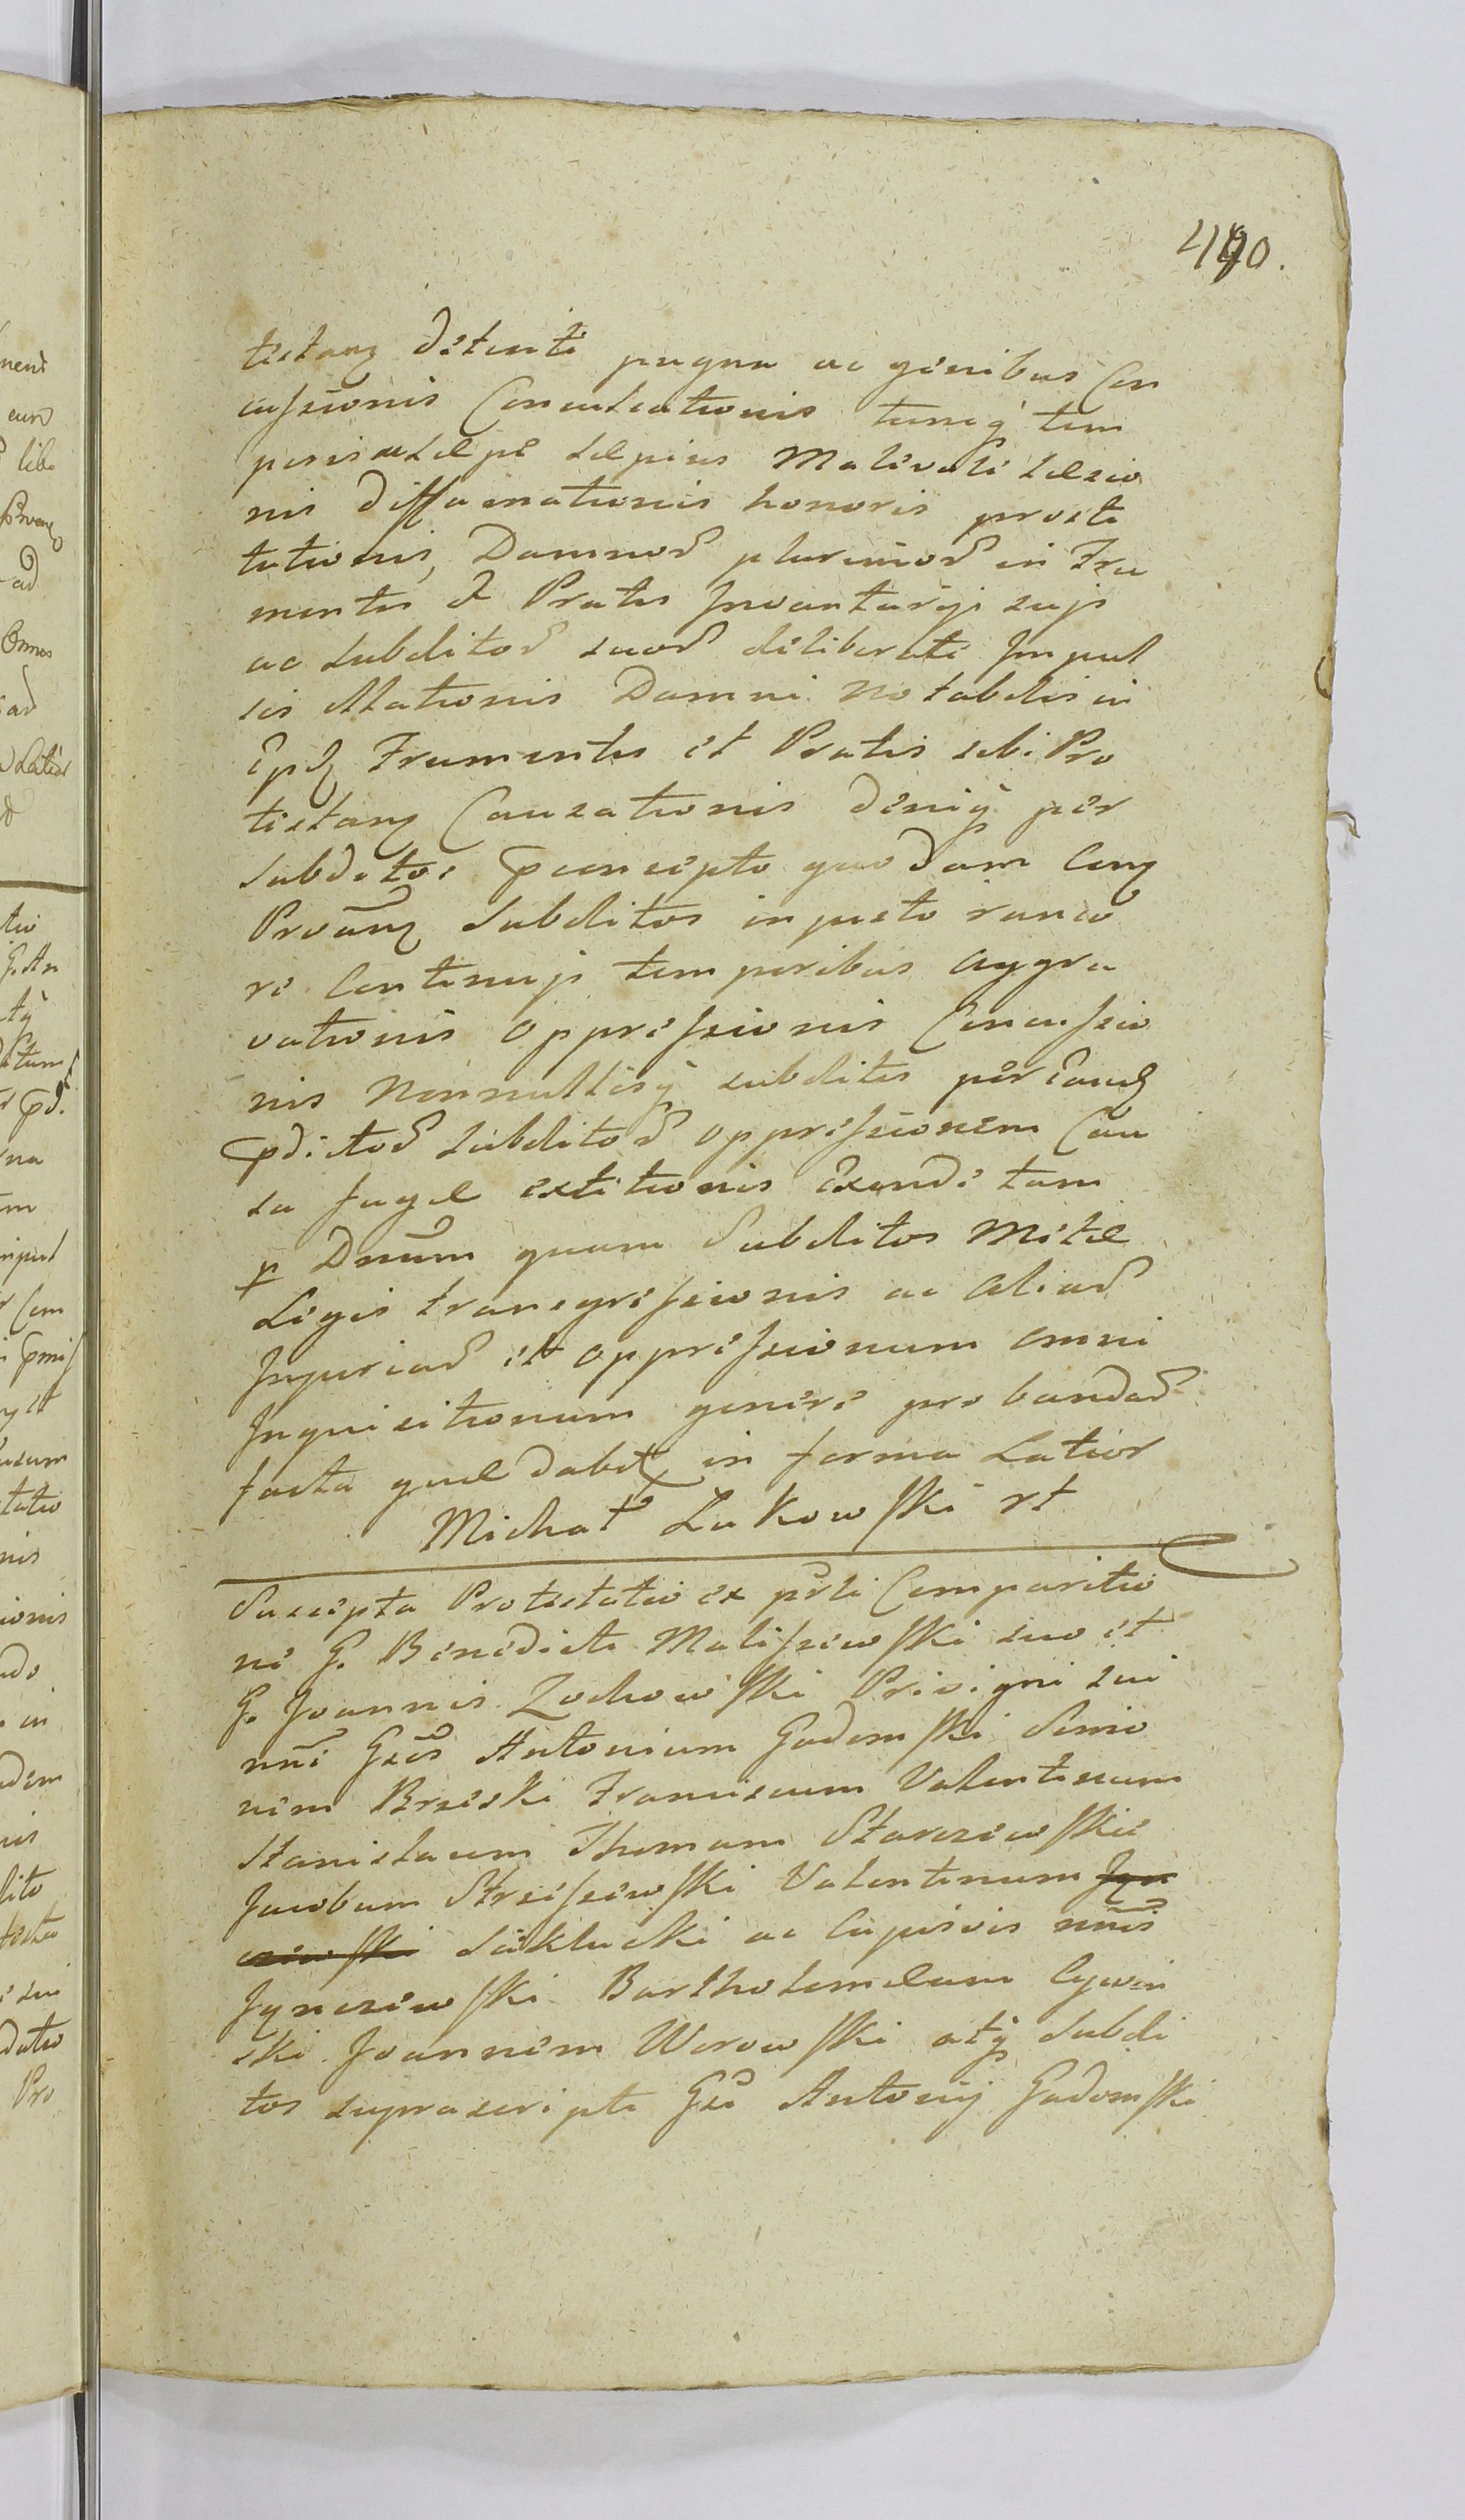 490.
testanẓ detenti pugnu ac genibus Con
cussionis Conculcationis tuncq; tem
poris ac sæpe sæpius Malevoli læsio
nis diffamationis honoris prosti
tutionis, Damnor plurimor in Fru
mentis & Pratis Inventarijs sujs
ac Subditor suor deliberate Impul
sis Illationis Damni notabilis in
Epdẓ Frumentis et Pratis sibi Pro
testanẓ Causationis deniq; per
Subditos pconcepto quodam Conẓ
Prōtanẓ Subditos injusto ranco
re Continujs temporibus Aggra
vationis oppressionis Concussio
nis Nonnullisq; subditis per Eandẓ
pdictor Subditor oppressionem Cau
sa fugæ extitionis Exende tam
p Dnūm quam Subditos Metæ
Legis transgressionis ac Aliar
Injuriar et oppressionum omni
Inquisitionum genere probandar
facta quæ dabit in forma Latior
Michał Łukowski rt
Suscepta Protestatio ex prsti Comparitio
ne G. Benedicti Maliszewski suo et
G. Joannis Zochowski Privigni sui
nni Gsos Antonium Gadomski Simo
nem Brzeski Franciscum Valentinum
Stanislaum Thomam Starczewskie
Jacobum Strzeszewski Valentinum Jyn
czewski Säkłucki ac Cujusvis nnis
Jynczewski Bartholomæum Cywin
ski Joannem Worowski atq; Subdi
tos suprascripti Gsi Antonij Gadomski